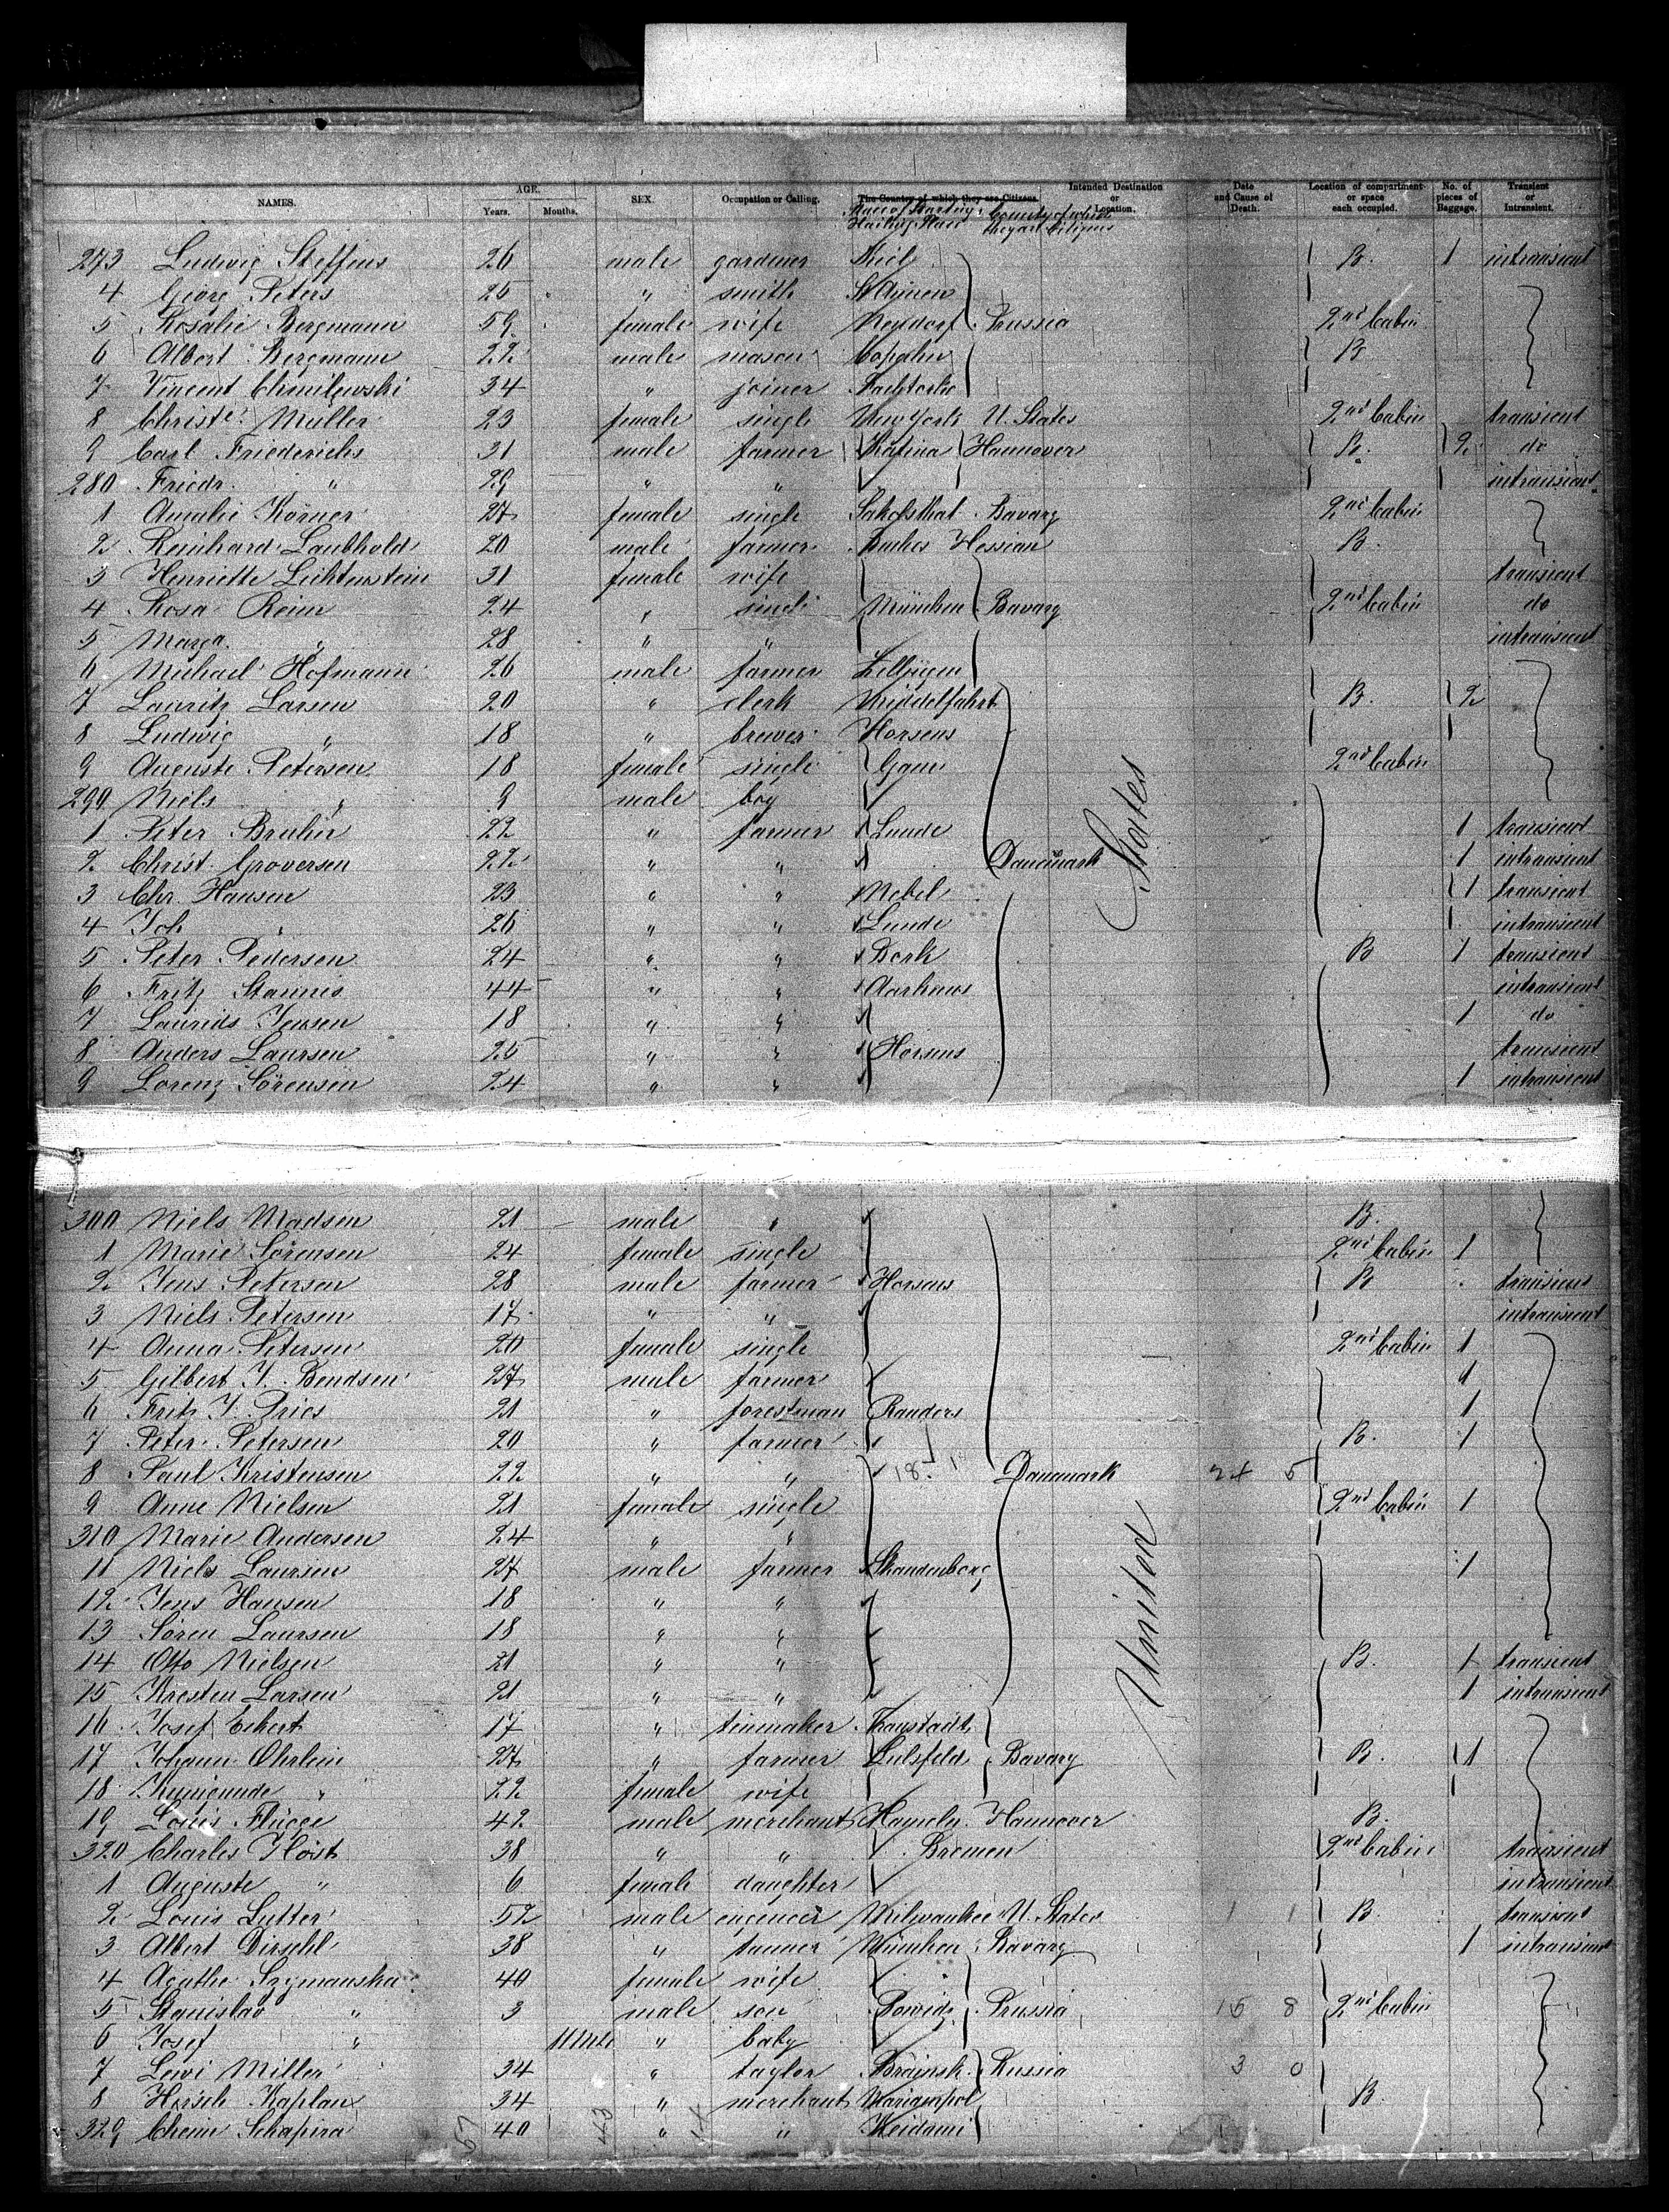 NAMES. AGE. Years. Months. SEX. Occupation or Calling. The Country of which they are Citizens. Intended Destination or Location. Date and Cause of Death. Location of compartment or space each occupied. No. of pieces of Baggage. Transient or Intransient.
Country of which they are Citizens
273 Ludwig Steffens 26 male gardener Kiel B. 1 intransient
4 Georg Peters 25 " smith
5 Rosalie Bergmann 59 female wife Prussia 2nd Cabin
6 Albert Bergmann 22 male mason B
7 Vincent Chmilewski 34 " joiner
8 Christe. Müller 23 female single New York U. States 2nd Cabin transient
9 Carl Friederichs 31 male farmer Hannover B. 2 do
280 Friedr. " 29 " " intransient
1 Amalie Körner 27 female single Bavary 2nd Cabin
2 Reinhard Laubhold 20 male farmer Hessian B.
3 Henriette Lichtenstein 31 female wife transient
4 Rosa Reim 24 " single München Bavary 2nd Cabin do
5 Marga. " 28 " " intransient
6 Michael Hofmann 26 male farmer
7 Lauritz Larsen 20 " clerk Middelfahrt B. 2
8 Ludwig " 18 " brewer Horsens
9 Auguste Petersen 18 female single 2nd Cabin
290 Niels " 9 male boy
1 Peter Bruhn 22 " farmer Lunde 1 transient
2 Christ. Groversen 22 " " Danemark 1 intransient
3 Chr. Hansen 23 " " Nebel 1 transient
4 Joh " 26 " " Lunde intransient
5 Peter Pedersen 24 " " Bork B 1 transient
6 Fritz Stannis 44 " " Aarhuus intransient
7 Laurids Jensen 18 " " 1 do
8 Anders Laursen 25 " " Horsens transient
9 Lorenz Sörensen 24 " " 1 intransient
States
300 Niels Madsen 21 male " B.
1 Marie Sörensen 24 female single 2nd Cabin 1
2 Jens Petersen 28 male farmer Horsens B transient
3 Niels Petersen 17 " " intransient
4 Anna Petersen 20 female single 2nd Cabin 1
5 Gilbert J. Bendsen 27 male farmer 1
6 Fritz J. Dries 21 " forestman Randers 1
7 Peter Petersen 20 " farmer B. 1
8 Paul Kristensen 22 " " Danemark
9 Anne Nielsen 21 female single 2nd Cabin 1
310 Marie Andersen 24 " "
11 Niels Laursen 27 male farmer Skandenborg 1
12 Jens Hansen 18 " "
13 Sören Laursen 18 " "
14 Otto Nielsen 21 " " B. 1 transient
15 Kresten Larsen 21 " " 1 intransient
United
16 Josef Eckert 17 " tinmaker
17 Johann Öhrlein 27 " farmer Lulsfeld Bavary B. 1
18 Kunigunde " 22 female wife
19 Louis Flügge 42 male merchant Hameln Hannover B.
320 Charles Höst 38 " " Bremen 2nd Cabin transient
1 Auguste " 6 female daughter intransient
2 Louis Lutter 52 male engeneer Milwaukee U. States B. transient
3 Albert Dirschl 38 " tanner München Bavary 1 intransient
4 Agathe Szymanska 40 female wife
5 Stanislav " 3 male son Powidz Prussia 2nd Cabin
6 Josef " 11 Mts " baby
7 Lewi Miller 34 " taylor Russia
8 Hersch Kaplan 34 " merchant Mariampol B.
329 Cheim Schapira 40 " "